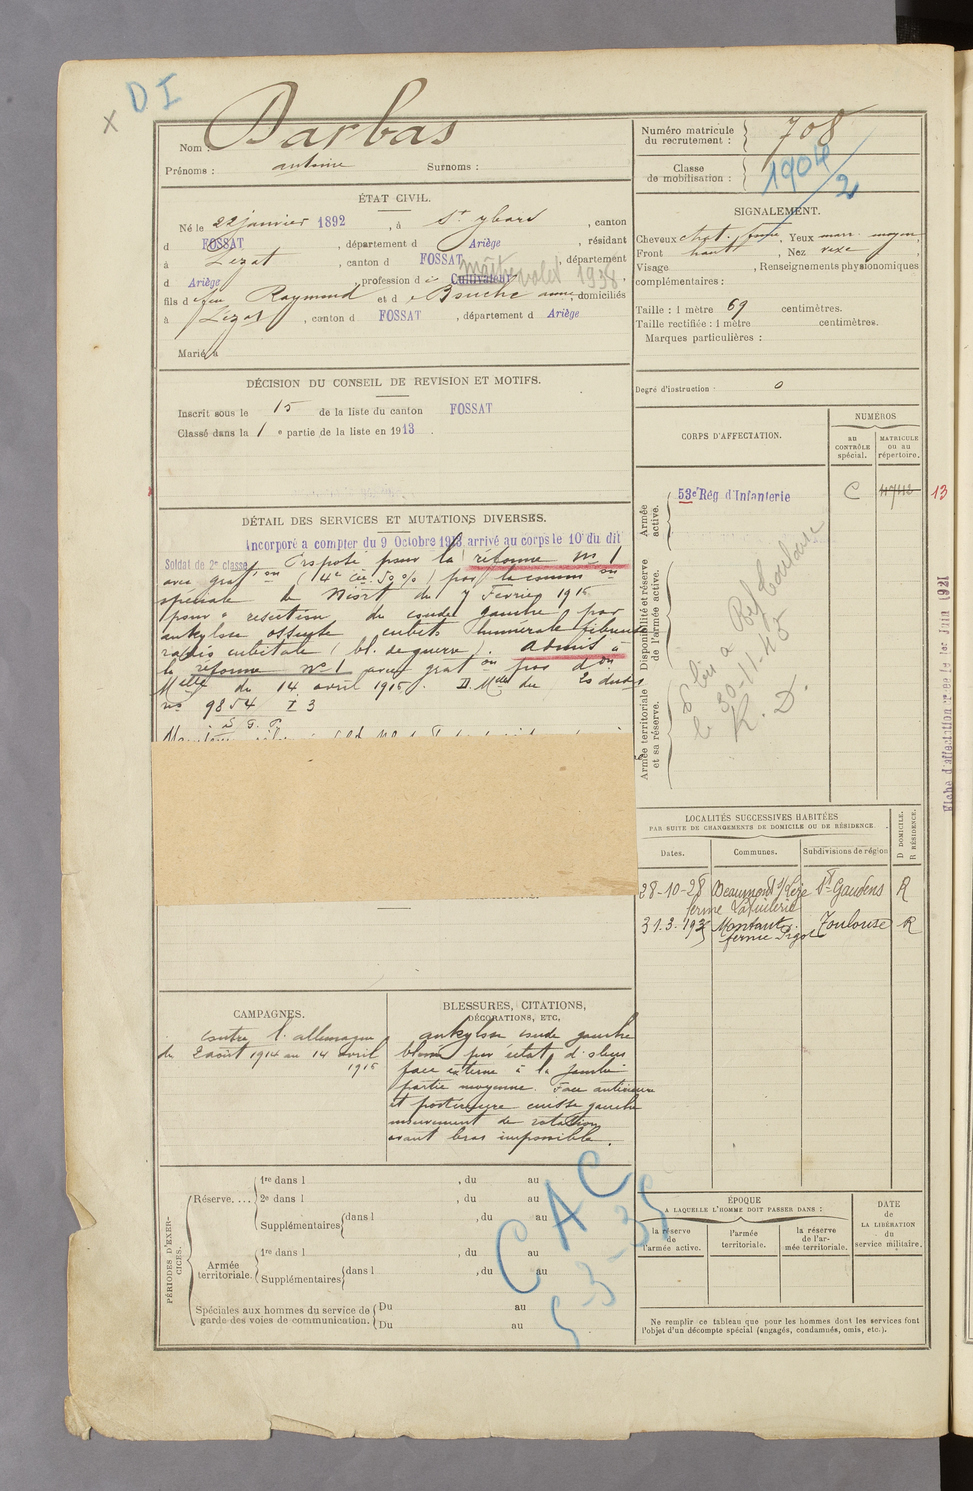 x D I
Nom : Barbas
Prénoms : antoine Surnoms :
ÉTAT CIVIL.
Né le 22 janvier 1892, à St ybars, canton
d FOSSAT, département d Ariège, résidant
à Lézat, canton d FOSSAT, département
d Ariège, profession d Cultivateur Maître valet 1938,
fils d feu Raymond et d Bouche anne, domiciliés
à Lézat, canton d FOSSAT, département d Ariège
Marié à
DÉCISION DU CONSEIL DE REVISION ET MOTIFS.
Inscrit sous le 15 de la liste du canton FOSSAT
Classé dans la 1e partie de la liste en 1913.
DÉTAIL DES SERVICES ET MUTATIONS DIVERSES.
Incorporé a compter du 9 Octobre 1913, arrivé au corps le 10 du dit
Soldat de 2e classe. Proposé pour la réforme no 1
avec grat on (4e cie 50 %) par la comm on
spéciale de Niort du 7 Février 1915
pour : résection du coude gauche par
ankylose osseuse cubito humérale fibreuse
radio cubitale (bl. de guerre). Admis à
la réforme No 1 avec grat on par d on
Melle du 14 avril 1915. D. Melle du 20 dudit
no 9854 I 3
S. G. P.
CAMPAGNES.
contre l'allemagne
du 2 août 1914 au 14 avril
1915
BLESSURES, CITATIONS,
DÉCORATIONS, ETC.
ankylose coude gauche
blessé par éclat d'obus
face externe à la jambe
partie moyenne. Face antérieure
et postérieure cuisse gauche
mouvement de rotation
avant bras impossible.
PÉRIODES D'EXERCICES.
Réserve.... 1re dans l , du au
2e dans l , du au
Supplémentaires dans l , du au
Armée territoriale. 1re dans l , du au
Supplémentaires dans l , du au
Spéciales aux hommes du service de garde des voies de communication. Du au
Du au
CAC
5-3-35
Numéro matricule du recrutement : 708
Classe de mobilisation : 1904/2
SIGNALEMENT.
Cheveux chat. foncé, Yeux marr. moyen,
Front haut, Nez vexe,
Visage , Renseignements physionomiques
complémentaires :
Taille : 1 mètre 69 centimètres.
Taille rectifiée : 1 mètre centimètres.
Marques particulières :
Degré d'instruction : 0
CORPS D'AFFECTATION.
NUMÉROS
au CONTRÔLE spécial.
MATRICULE ou au répertoire.
Armée active.
53e Rég d'Infanterie C 4743 13
Disponibilité et réserve de l'armée active.
Armée territoriale et sa réserve.
le 30-11-45
K. D.
LOCALITÉS SUCCESSIVES HABITÉES
PAR SUITE DE CHANGEMENTS DE DOMICILE OU DE RÉSIDENCE.
Dates. Communes. Subdivisions de région D DOMICILE. R RÉSIDENCE.
28-10-28 Beaumont s/Lèze St Gaudens R
ferme
31.3.1935 Montaut Toulouse R
ferme
ÉPOQUE
A LAQUELLE L'HOMME DOIT PASSER DANS :
la réserve de l'armée active.
l'armée territoriale.
la réserve de l'armée territoriale.
DATE de LA LIBÉRATION du service militaire.
Ne remplir ce tableau que pour les hommes dont les services font
l'objet d'un décompte spécial (engagés, condamnés, omis, etc.).